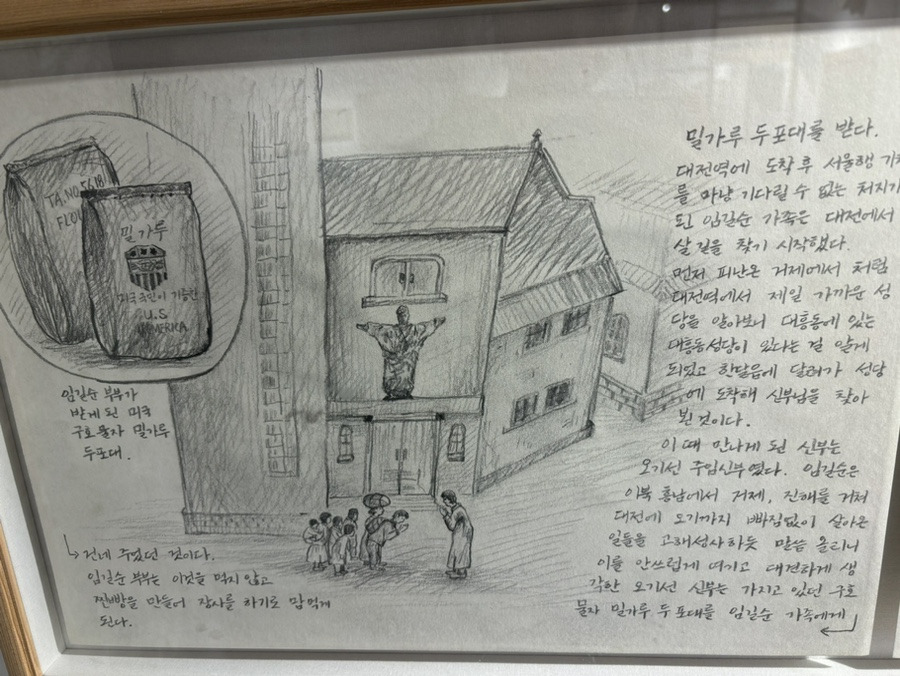 밀가루 두포대를 받다.
대전역에 도착 후 서울행 기차
를 마냥 기다릴 수 없는 처지가
된 임길순 가족은 대전에서
살 길을 찾기 시작했다.
먼저 피난온 거제에서 처럼
대전역에서 제일 가까운 성
당을 알아보니 대흥동에 있는
대흥동성당이 있다는 걸 알게
되었고 한달음에 달려가 성당
에 도착해 신부님을 찾아
뵌 것이다.
이 때 만나게 된 신부는
오기선 주임신부였다. 임길순은
이북 흥남에서 거제, 진해를 거쳐
대전에 오기까지 빠짐없이 살아온
일들을 고해성사하듯 말씀 올리니
이를 안쓰럽게 여기고 대견하게 생
각한 오기선 신부는 가지고 있던 구호
물자 밀가루 두포대를 임길순 가족에게
건네 주었던 것이다.
임길순 부부는 이것을 먹지 않고
찐빵을 만들어 장사를 하기로 맘먹게
된다.
TA.NO.5618
FLOU
밀가루
미국국민이 기증한
U.S
AMERICA
임길순 부부가
받게 된 미국
구호물자 밀가루
두포대.